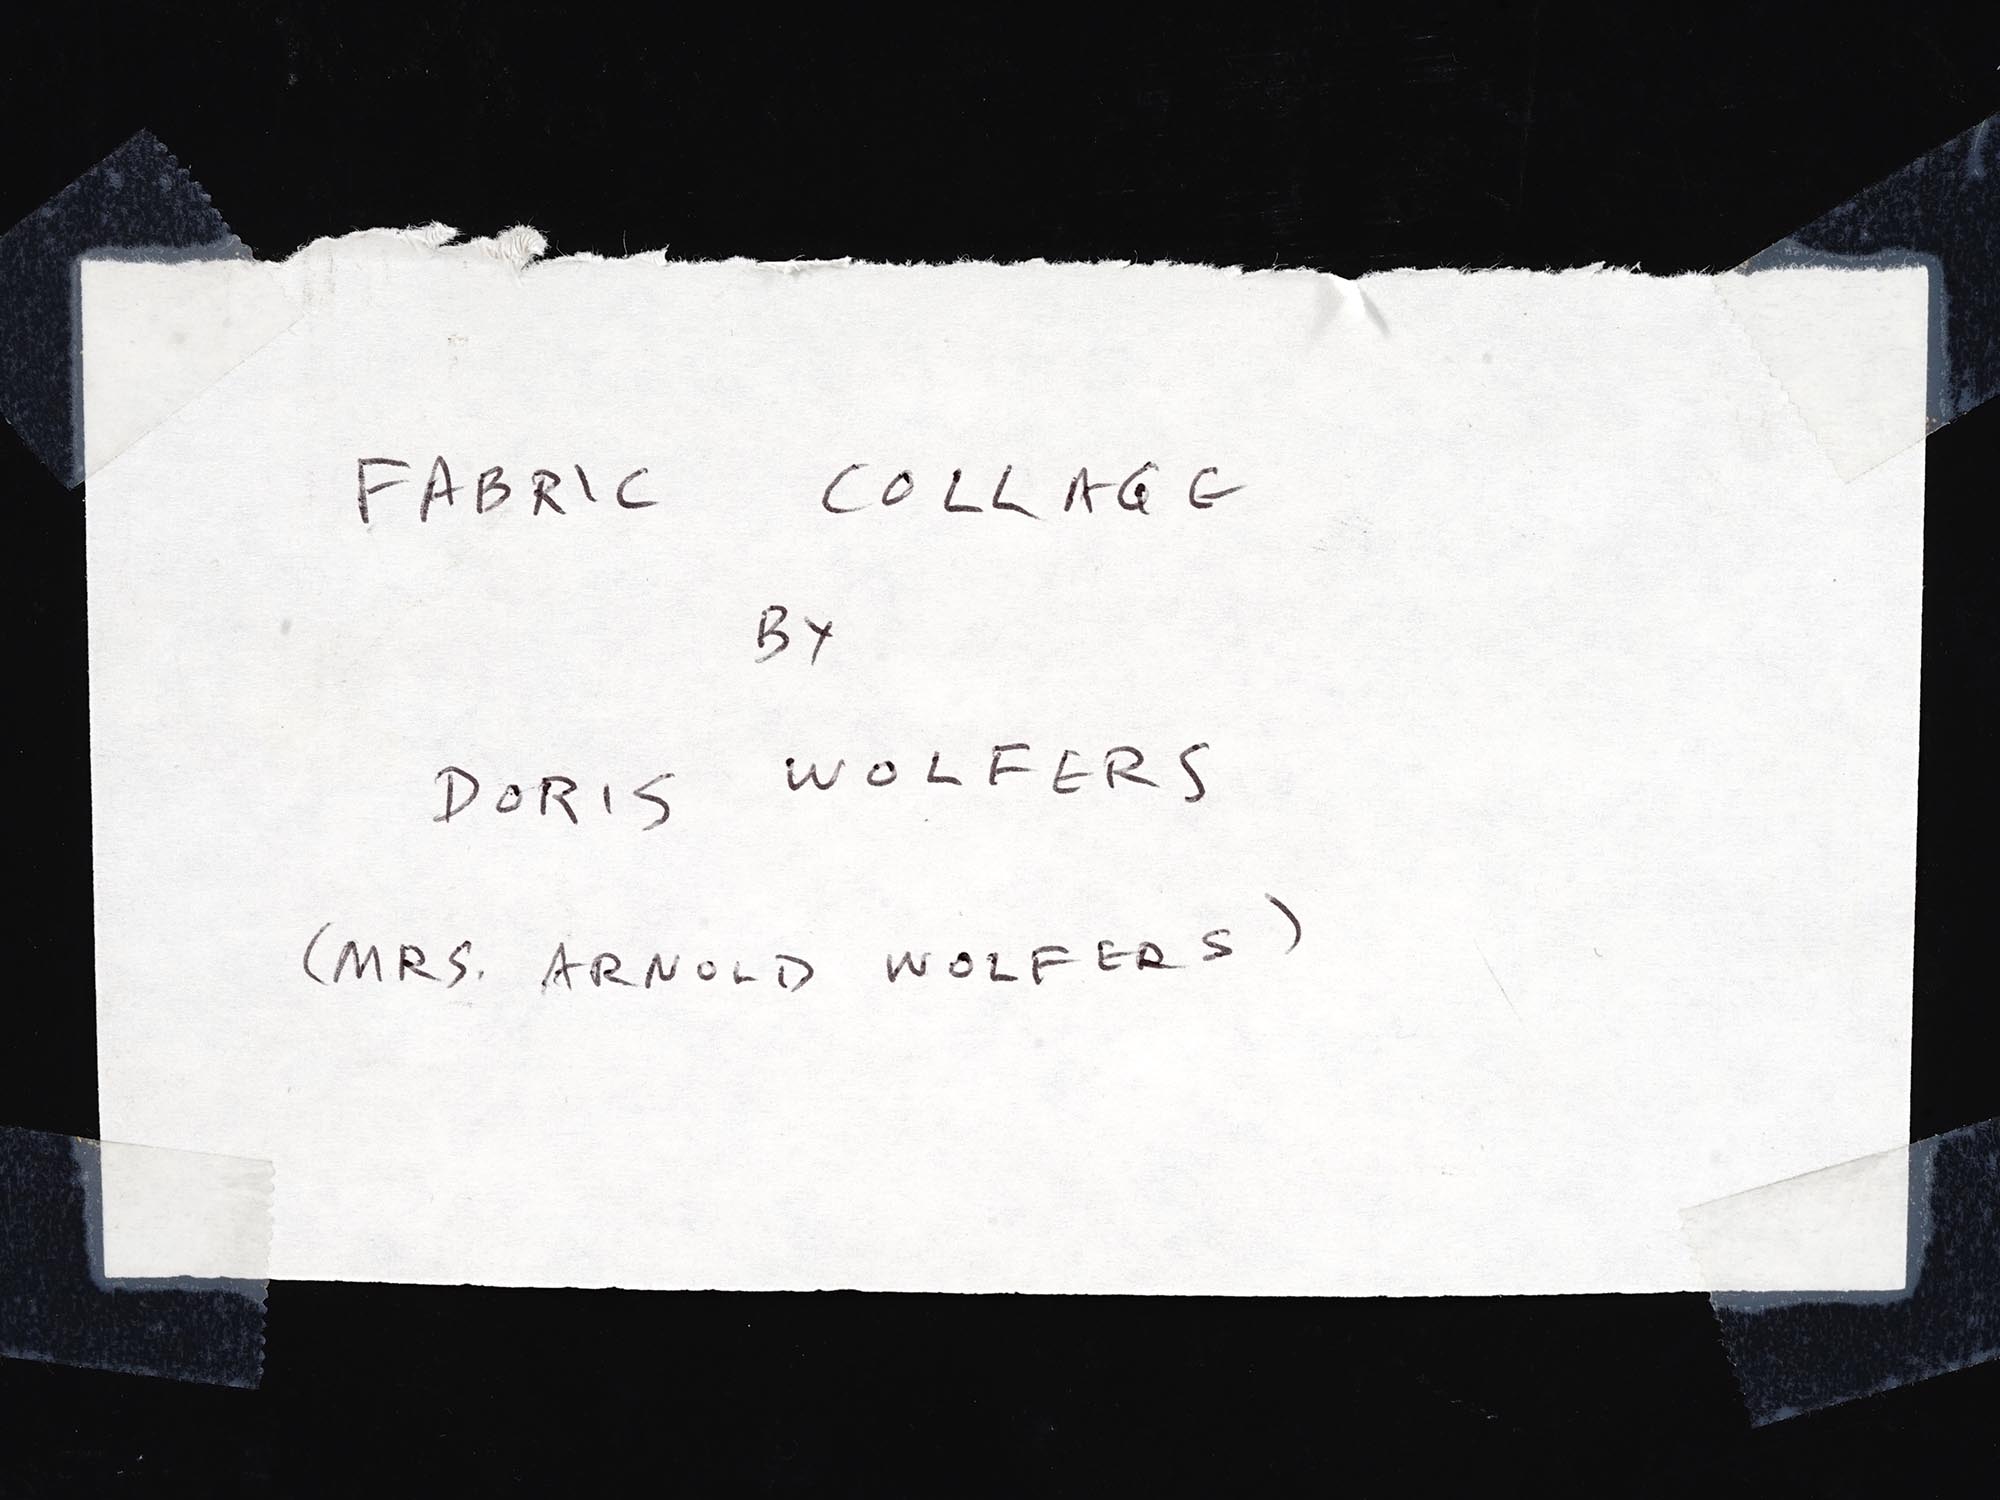 FABRIC COLLAGE
BY
DORIS WOLFERS
(MRS. ARNOLD WOLFERS)